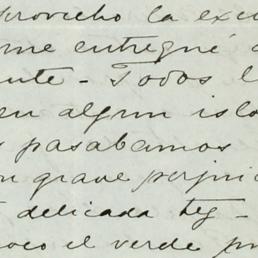 provecho la exc
me entregué
nte - Todos l
en algun islo
pasabamos
n grave perjui
delicada teg -
oco el verde pr